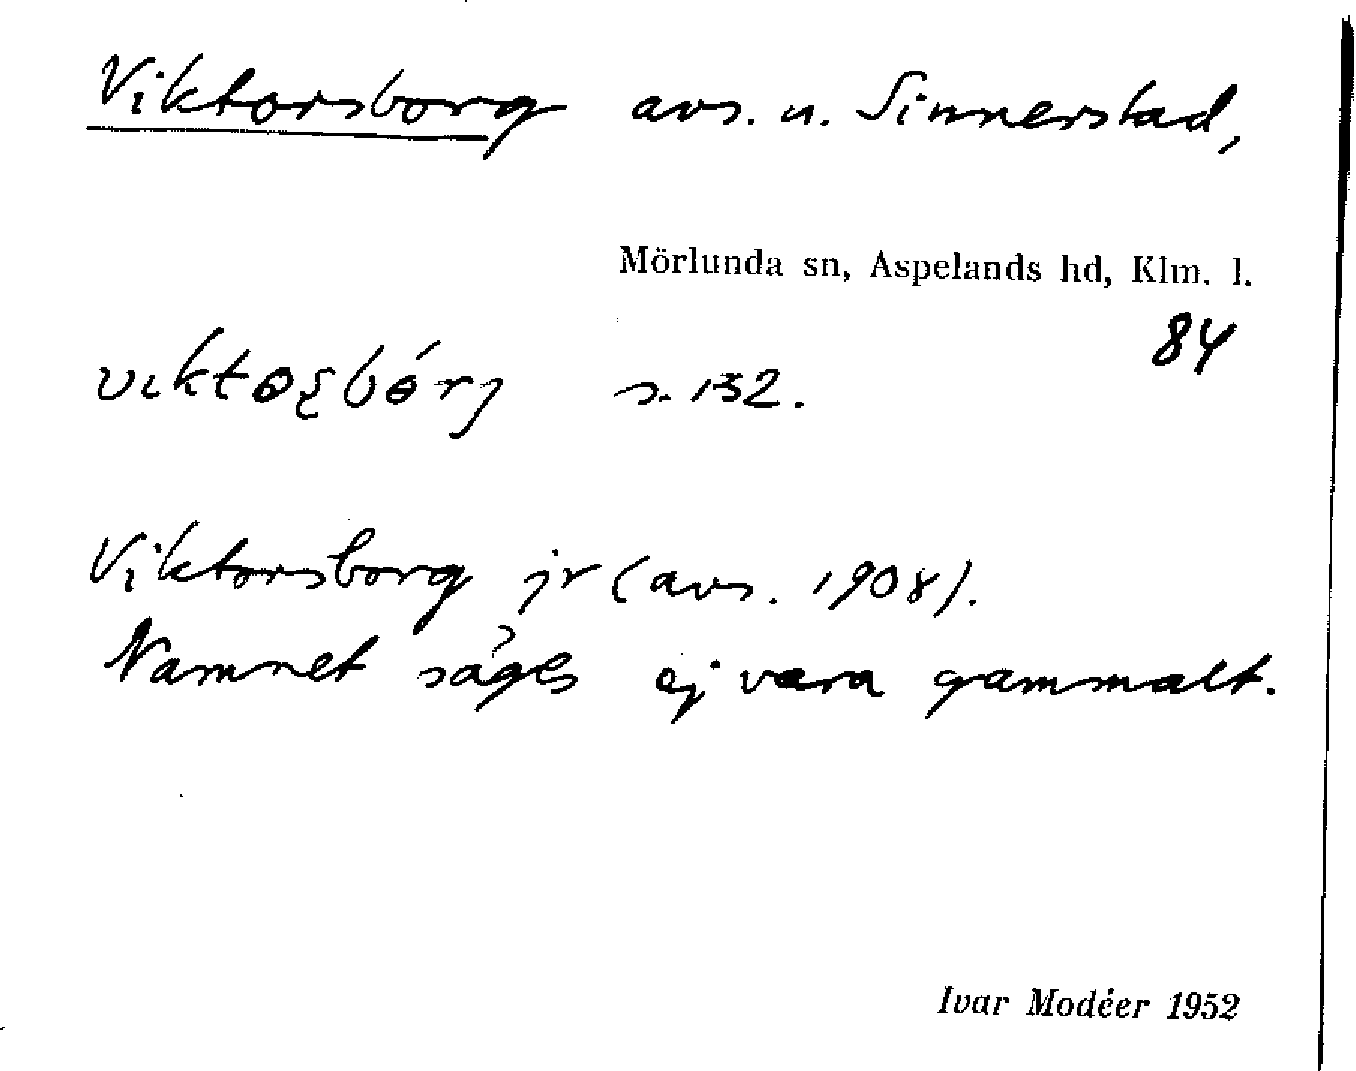 Viktorsborg avs. u. Sinnerstad,
Mörlunda sn, Aspelands hd, Klm. l.
84
s. 132.
Viktorsborg jr (avs. 1908).
Namnet säges ej vara gammalt.
Ivar Modéer 1952